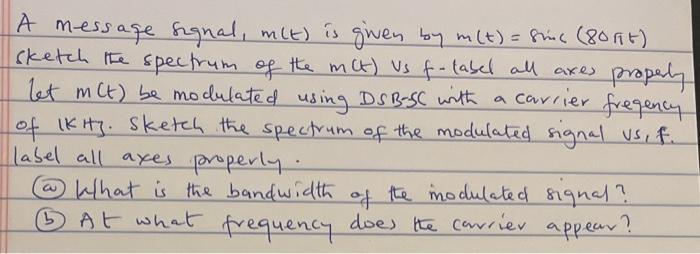 A message signal, m(t) is given by m(t) = sinc (80πt)
sketch the spectrum of the m(t) vs f - label all axes properly
let m(t) be modulated using DSB-SC with a carrier freqency
of 1KHz. Sketch the spectrum of the modulated signal vs, f.
label all axes properly.
(a) What is the bandwidth of the modulated signal?
(b) At what frequency does the carrier appear?